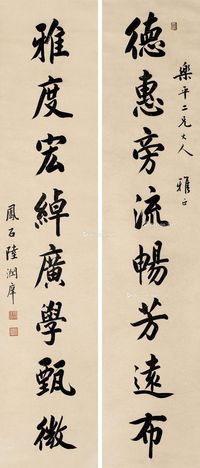 德惠旁流暢芳遠布
樂平二兄大人 雅正
雅度宏綽廣學甄微
鳳石陸潤庠